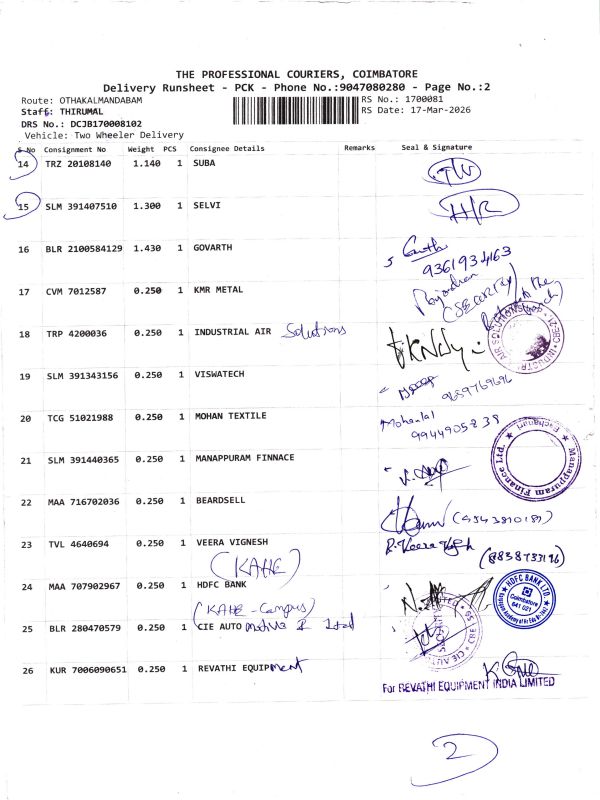 THE PROFESSIONAL COURIERS, COIMBATORE
Delivery Runsheet - PCK - Phone No.:9047080280 - Page No.:2
Route: OTHAKALMANDABAM
RS No.: 1700081
Staff: THIRUMAL
RS Date: 17-Mar-2026
DRS No.: DCJB170008102
Vehicle: Two Wheeler Delivery
S No Consignment No Weight PCS Consignee Details Remarks Seal & Signature
14 TRZ 20108140 1.140 1 SUBA
15 SLM 391407510 1.300 1 SELVI H/R
16 BLR 2100584129 1.430 1 GOVARTH
9361934163
17 CVM 7012587 0.250 1 KMR METAL
(SECURITY)
18 TRP 4200036 0.250 1 INDUSTRIAL AIR Solutions
19 SLM 391343156 0.250 1 VISWATECH
9659769696
20 TCG 51021988 0.250 1 MOHAN TEXTILE Mohanlal
9944905238
21 SLM 391440365 0.250 1 MANAPPURAM FINNACE
Manappuram Finance Ltd.
22 MAA 716702036 0.250 1 BEARDSELL
23 TVL 4640694 0.250 1 VEERA VIGNESH
(KAHE)
24 MAA 707902967 0.250 1 HDFC BANK
HDFC BANK LTD
Coimbatore
641 021
(KAHE - Campus)
25 BLR 280470579 0.250 1 CIE AUTO
26 KUR 7006090651 0.250 1 REVATHI EQUIPment
For REVATHI EQUIPMENT INDIA LIMITED
2